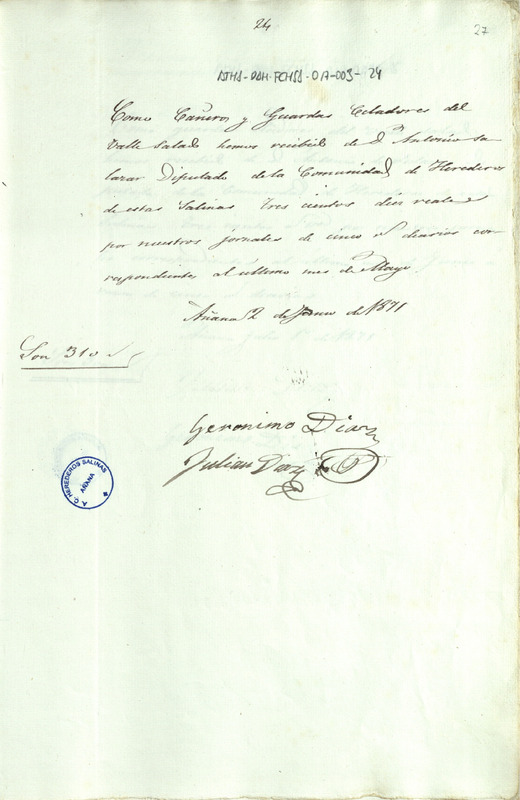 24
27
ATHA-DAH-FCHSS-017-003-24
Como Cañeros y Guardas Celadores del
Valle Salado hemos recibido de D. Antonio Sa
lazar Diputado de la Comunidad de Herederos
de estas Salinas Tres cientos diez reales
por nuestros jornales de cinco rs diarios cor-
respondientes al ultimo mes de Mayo.
Añana 2 de Junio de 1871
Son 310 rs
Geronimo Diaz
Julian Diaz
A. C. HEREDEROS SALINAS
AÑANA